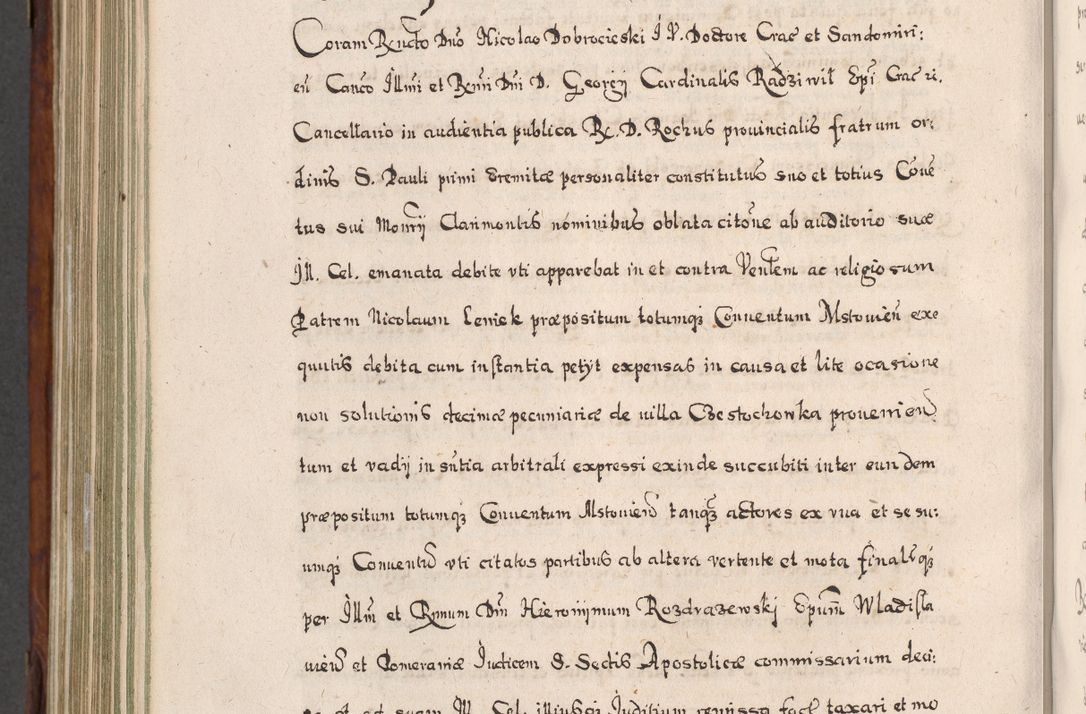 Coram Rndo Dno Nicolao Dobrocieski I. V. Doctore Crac et Sandomiri:
eñ Canco Illmi et Rmi Dni D. Georgij Cardinalis Radziwil Epi Crac ri.
Cancellario in audientia publica R. D. Rochus prouincialis fratrum or:
dinis S. Pauli primi Eremitæ personaliter constitutus suo et totius Coue
tus sui Monrij Clarimontis nominibus oblata citone ab auditorio suæ
Ill. Cel. emanata debite vti apparebat in et contra Venlem ac religiosum
Patrem Nicolaum Leniek præpositum totumq; Conuentum Mstouieñ exe
quutis debita cum instantia petijt expensas in causa et lite ocasione
non solutionis decimæ pecuniariæ de uilla Czestochowka prouenien
tum et vadij in sntia arbitrali expressi exinde succubiti inter eundem
præpositum totumq; Conuentum Mstouien tanq; actores ex vna et se su:
umq; Conuentu vti citatos partibus ab altera vertente et mota finalrq;
per Illm et Rmum Dnm Hieronijmum Rozdrazewskj Epum Wladisla
uien et Pomeraniæ Iudicem S. Sedis Apostolicæ commissarium deci:
et ad suam Ill. Cel. Iuditium remissa facl taxari et mo